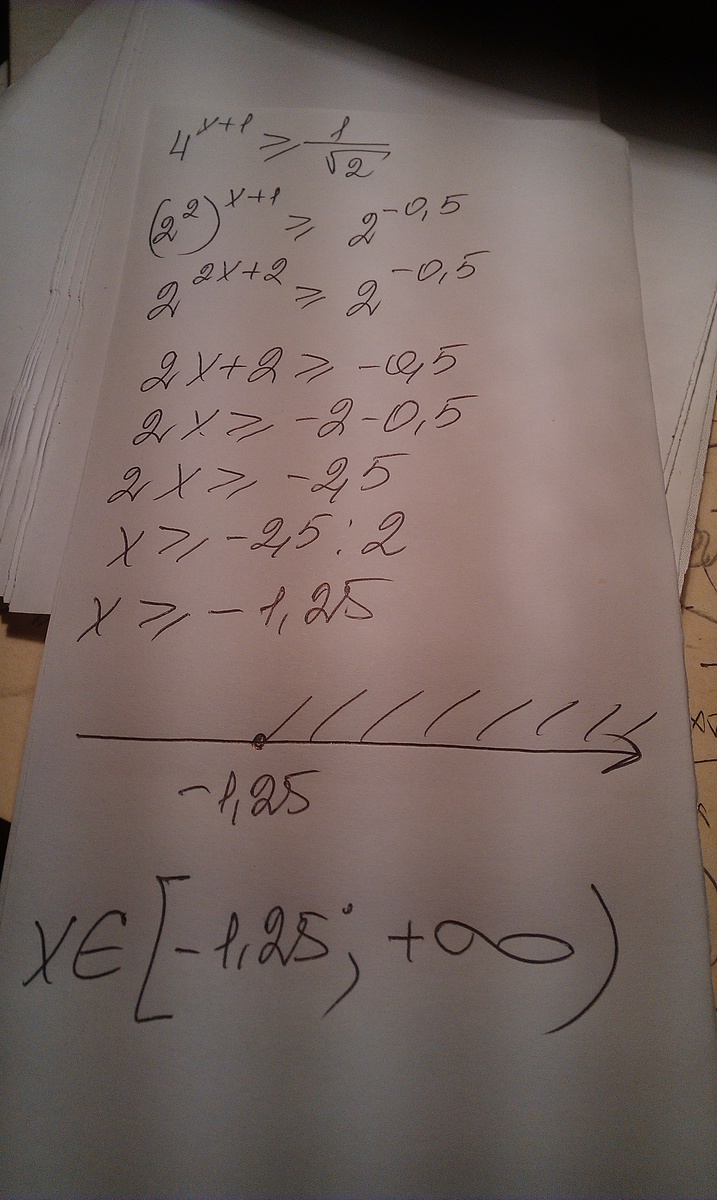 4^{x+1} ≥ \frac{1}{\sqrt{2}}
(2^2)^{x+1} ≥ 2^{-0,5}
2^{2x+2} ≥ 2^{-0,5}
2x+2 ≥ -0,5
2x ≥ -2-0,5
2x ≥ -2,5
x ≥ -2,5 : 2
x ≥ -1,25
-1,25
x∈[-1,25; +∞)